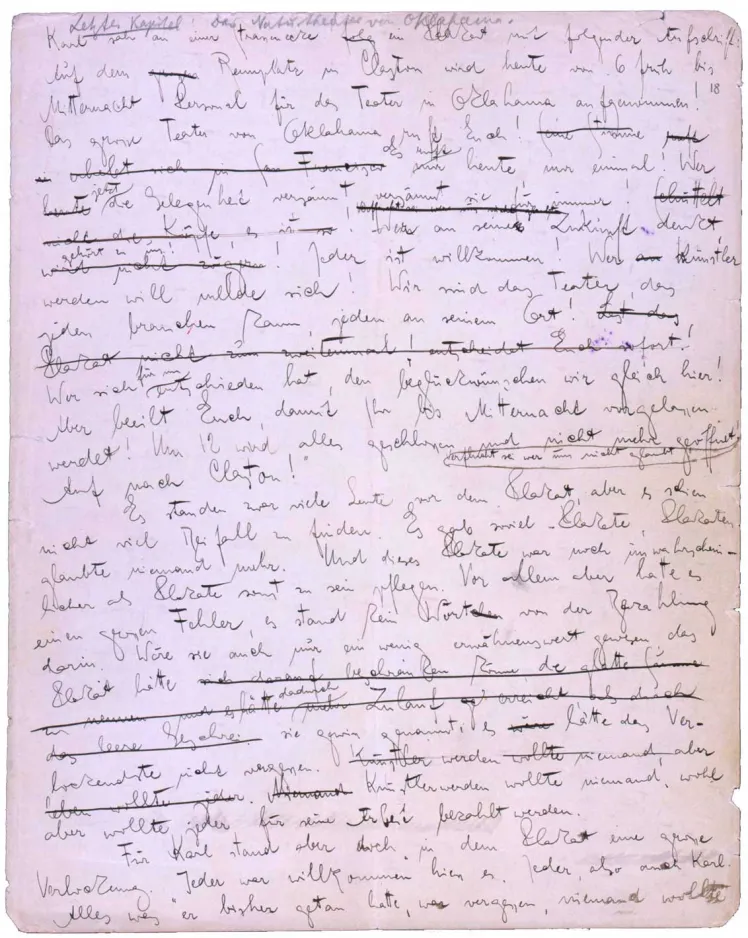 Letztes Kapitel! Das Naturtheater von Oklahama.
Karl sah an einer Strassenecke ein Plakat mit folgender Aufschrift:
Auf dem Rennplatz in Clayton wird heute von 6 früh bis
Mitternacht Personal für das Teater in Oklahama aufgenommen!
18
Das grosse Teater von Oklahama ruft Euch! Eine Stimme
erhebt sich in San Franzisco Es ruft nur heute nur einmal! Wer
jetzt die Gelegenheit versäumt versäumt sie für immer! Schüttelt
nicht die Köpfe, es ist ! Wer an seine Zukunft denkt,
gehört zu uns!
wird nicht zögern! Jeder ist willkommen! Wer Künstler
werden will melde sich! Wir sind das Teater, das
jeden brauchen kann, jeden an seinem Ort! Lest das
Plakat nicht zum zweitenmal! entscheidet Euch sofort!
Wer sich für uns entschieden hat, den beglückwünschen wir gleich hier!
Aber beeilt Euch, damit Ihr bis Mitternacht vorgelassen
werdet! Um 12 wird alles geschlossen und nicht mehr geöffnet
Verflucht sei wer uns nicht glaubt!
Auf nach Clayton!"
Es standen zwar viele Leute vor dem Plakat, aber es schien
nicht viel Beifall zu finden. Es gab soviel Plakate, Plakaten
glaubte niemand mehr. Und dieses Plakat war noch unwahrschein-
licher als Plakate sonst zu sein pflegen. Vor allem aber hatte es
einen grossen Fehler, es stand kein Wörtchen von der Bezahlung
darin. Wäre sie auch nur ein wenig erwähnenswert gewesen, das
Plakat hätte sich darauf beschränken können, die glatte Summe
zu nennen und es hätte dadurch mehr Zulauf erreicht als durch
das leere Geschrei. sie gewiss genannt; es hätte das Ver-
lockendste nicht vergessen. Künstler werden wollte niemand, aber
leben wollte jeder. Niemand Künstlerwerden wollte niemand, wohl
aber wollte jeder für seine Arbeit bezahlt werden.
Für Karl stand aber doch in dem Plakat eine grosse
Verlockung. "Jeder war willkommen" hiess es. Jeder, also auch Karl.
Alles was er bisher getan hatte, war vergessen, niemand wollte